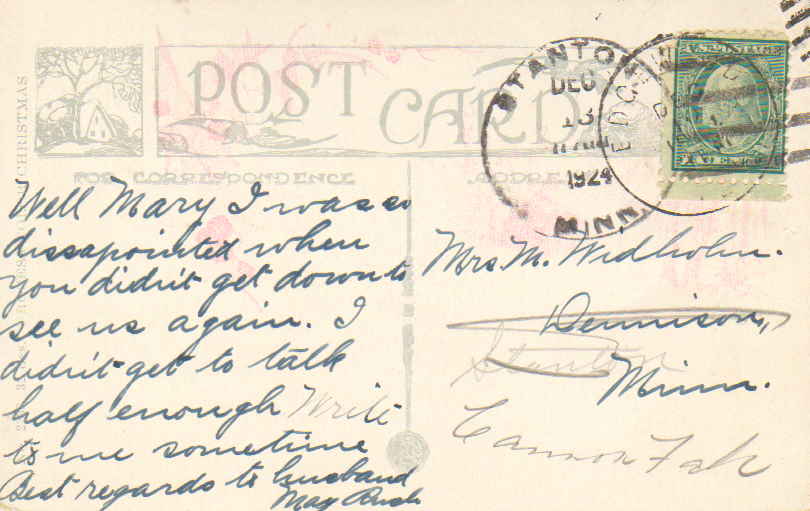 POST CARD
FOR CORRESPONDENCE
ADDRESS
STANTON
DEC
13
1924
MINN.
Well Mary I was so
dissapointed when
you didn't get down to
see us again. I
didn't get to talk
half enough Write
to me sometime
Best regards to husband
May Bush
Mrs. M. Widholm.
Dennison,
Stanton
Minn.
Cannon Falls
CHRISTMAS